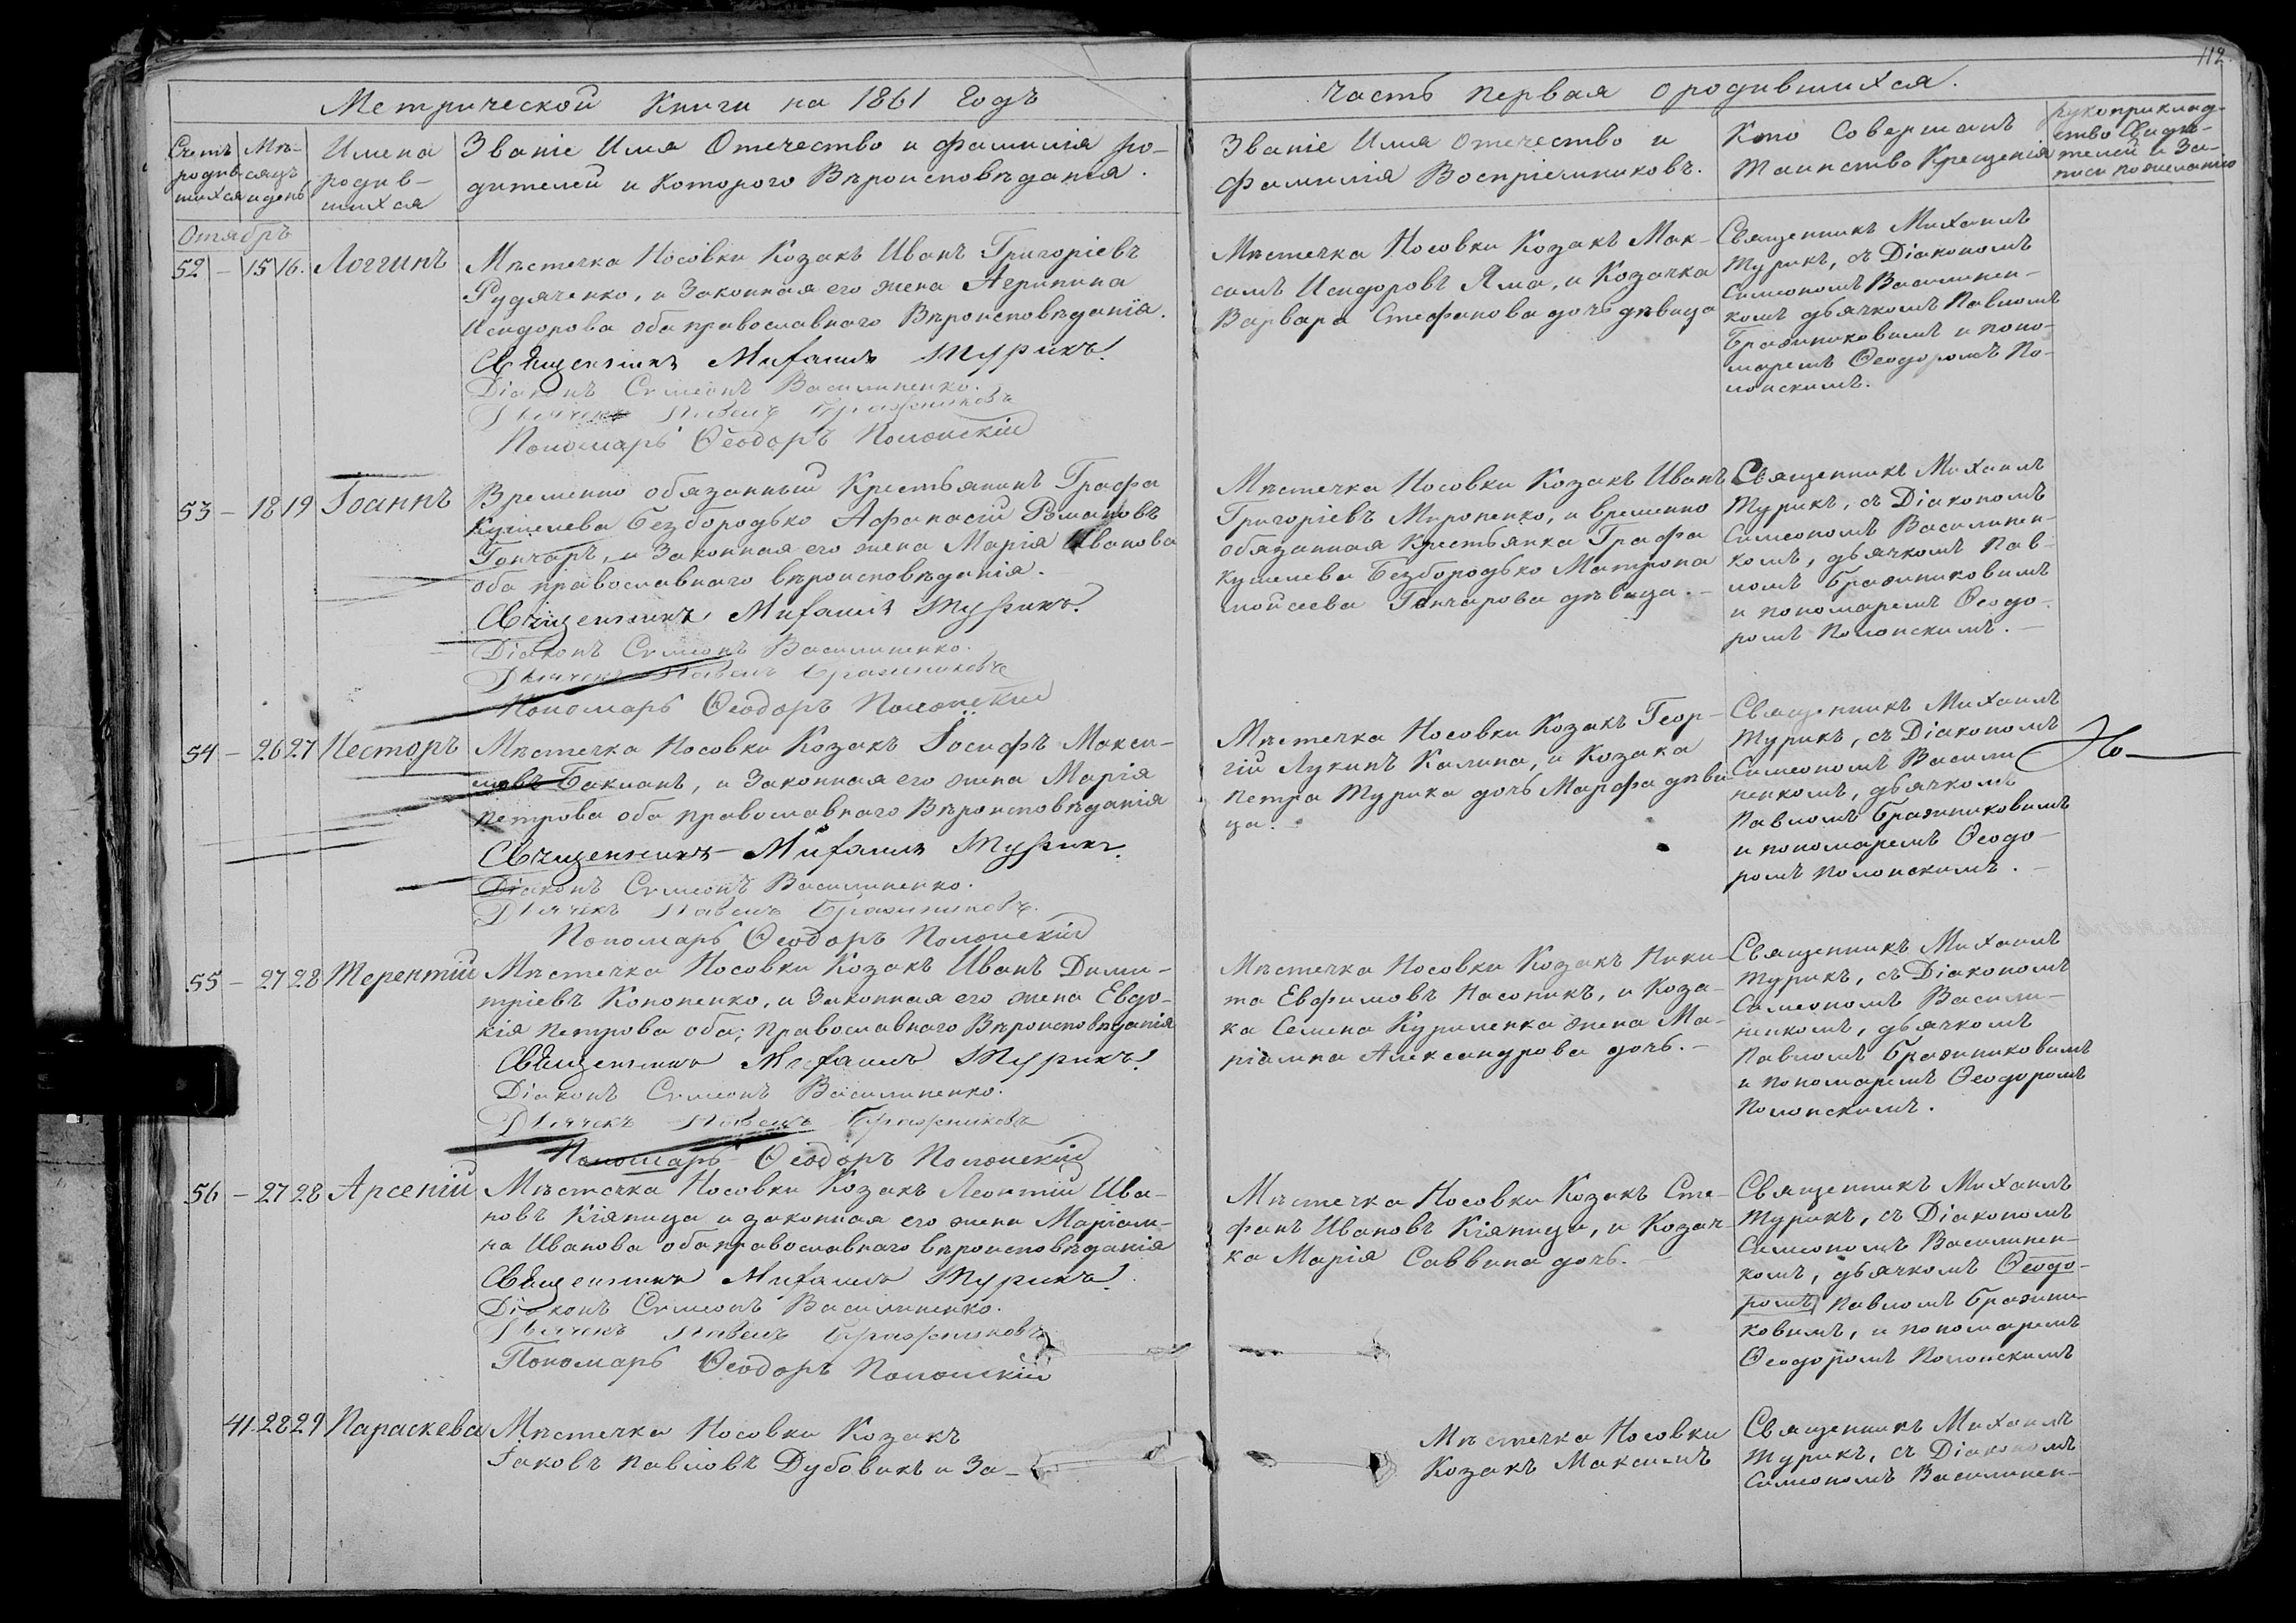 112
Метрической Книги на 1861 годъ
Часть первая о родившихся.
Счетъ родив-шихся
Мѣ-сяцъ и день
Имена
родив-
шихся
Званіе Имя Отечество и фамилія ро-
дителей и которого Вѣроисповѣданія.
Званіе Имя отечество и
Фамилія Воспріемниковъ.
Кто Совершалъ
Таинство Крещенія
рукоприклад-
ство Свидѣ-
телей и За-
писи по желанію
Октябрь
52 – 15 16. Логгинъ
Мѣстечка Носовки Козакъ Иванъ Григоріевъ
Рудяченко, и Законная его жена Агрипина
Исидорова оба православнаго Вѣроисповѣданія.
Священникъ Михаилъ Турикъ.
Діаконъ Симеонъ Василиненко.
Дьячекъ Павелъ Бражниковъ
Пономарь Ѳеодоръ Полонскій
Мѣстечка Носовки Козакъ Мак-
симъ Исидоровъ Яма, и Козачка
Варвара Стефанова дочь дѣвица
Священникъ Михаилъ
Турикъ, съ Діакономъ
Симеономъ Василинен-
комъ дьячкомъ Павломъ
Бражниковимъ и поно-
маремъ Ѳеодоромъ По-
лонскимъ.
53 – 18 19 Іоаннъ
Временно обязанный Крестьянинъ Графа
Кушелева Безбородько Афанасій Романовъ
Гончаръ, и Законная его жена Марія Иванова
оба православнаго вѣроисповѣданія.
Священникъ Михаилъ Турикъ.
Діаконъ Симеонъ Василиненко.
Дьячекъ Павелъ Бражниковъ
Пономарь Ѳеодоръ Полонскій
Мѣстечка Носовки Козакъ Иванъ
Григоріевъ Мироненко, и временно
обязанная Крестьянка Графа
Кушелева Безбородько Матрона
моисеева Гончарова дѣвица. –
Священникъ Михаилъ
Турикъ, съ Діакономъ
Симеономъ Василинен-
комъ, дьячкомъ Пав-
ломъ Бражниковимъ
и пономаремъ Ѳеодо-
ромъ Полонскимъ. –
54 – 26 27 Несторъ
Мѣстечка Носовки Козакъ Іосифъ Макси-
мовъ Бакланъ, и Законная его жена Марія
Петрова оба православнаго Вѣроисповѣданія
Священникъ Михаилъ Турикъ.
Діаконъ Симеонъ Василиненко.
Дьячекъ Павелъ Бражниковъ.
Пономарь Ѳеодоръ Полонскій
Мѣстечка Носовки Козакъ Геор-
гій Лукинъ Калина, и Козака
Петра Турика дочь Марфа дѣви-
ца. –
Священникъ Михаилъ
Турикъ, съ Діакономъ
Симеономъ Васили
ненкомъ, дьячкомъ
Павломъ Бражниковимъ
и пономаремъ Ѳеодо-
ромъ Полонскимъ. –
55 – 27 28 Терентій
Мѣстечка Носовки Козакъ Иванъ Дими-
тріевъ Кононенко, и Законная его жена Евдо-
кія Петрова оба; православнаго Вѣроисповѣданія
Священникъ Михаилъ Турикъ.
Діаконъ Симеонъ Василиненко.
Дьячекъ Павелъ Бражниковъ
Пономарь Ѳеодоръ Полонскій
Мѣстечка Носовки Козакъ Ники-
та Евфимовъ Насоникъ, и Коза-
ка Семена Куриленка жена Ма-
ріамна Александрова дочь. –
Священникъ Михаилъ
Турикъ, съ Діакономъ
Симеономъ Васили-
ненкомъ, дьячкомъ
Павломъ Бражниковимъ
и пономаремъ Ѳеодоромъ
Полонскимъ.
56 – 27 28 Арсеній
Мѣстечка Носовки Козакъ Леонтій Ива-
новъ Кіяница и законная его жена Маріам-
на Иванова оба православнаго вѣроисповѣданія
Священникъ Михаилъ Турикъ.
Діаконъ Симеонъ Василиненко.
Дьячекъ Павелъ Бражниковъ
Пономарь Ѳеодоръ Полонскій
Мѣстечка Носовки Козакъ Сте-
фанъ Ивановъ Кіяница, и Козач-
ка Марія Саввина дочь.
Священникъ Михаилъ
Турикъ, съ Діакономъ
Симеономъ Василинен-
комъ, дьячкомъ Ѳеодо-
ромъ Павломъ Бражни-
ковимъ, и пономаремъ
Ѳеодоромъ Полонскимъ
41. 28 29 Параскева
Мѣстечка Носовки Козакъ
Іаковъ Павловъ Дубовикъ и За-
Мѣстечка Носовки
Козакъ Максимъ
Священникъ Михаилъ
Турикъ, съ Діакономъ
Симеономъ Василинен-